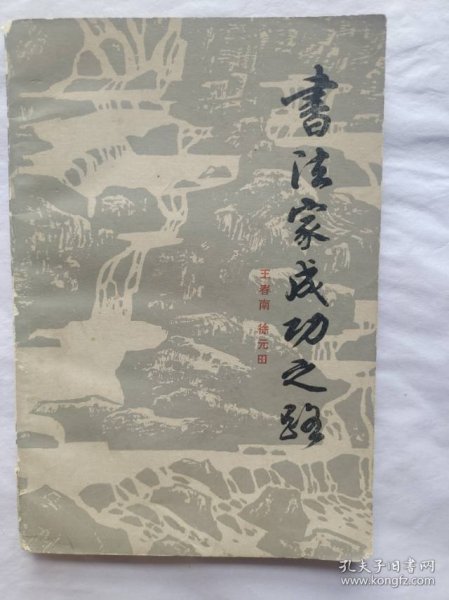 書法家成功之路
王春南 徐元田
孔夫子旧书网
www.kongfz.com